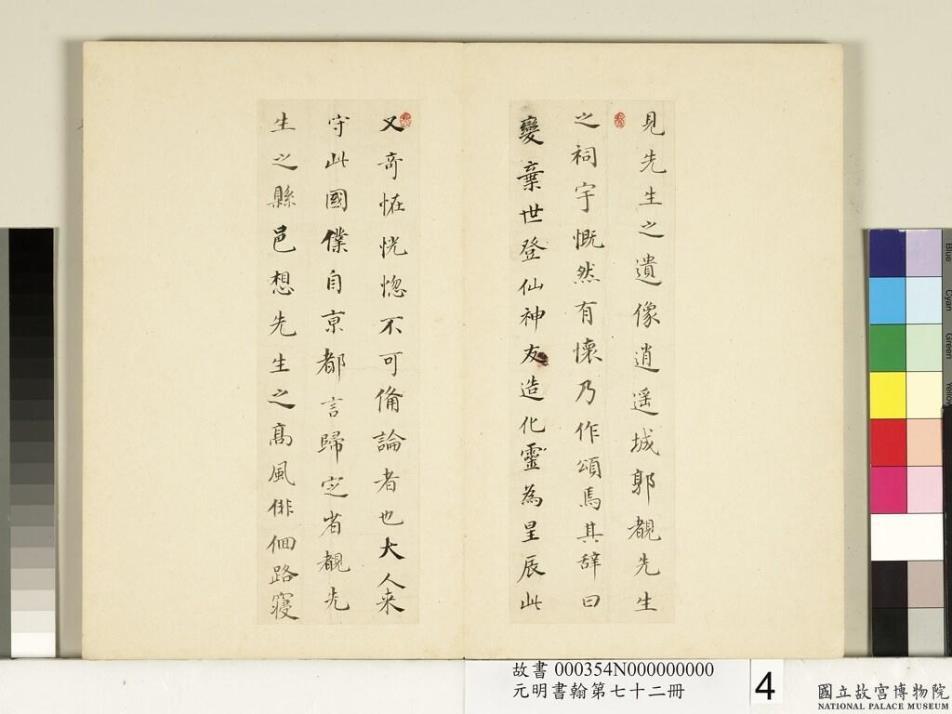 見先生之遺像逍遥城郭覩先生
之祠宇慨然有懷乃作頌焉其辞曰
變棄世登仙神友造化靈為星辰此
又奇恠恍惚不可俻論者也大人来
守此國僕自京都言歸定省覩先
生之縣邑想先生之高風俳佪路寝
故書 000354N000000000
元明書翰第七十二冊
4
國立故宮博物院
NATIONAL PALACE MUSEUM
Blue
Cyan
Green
Yellow